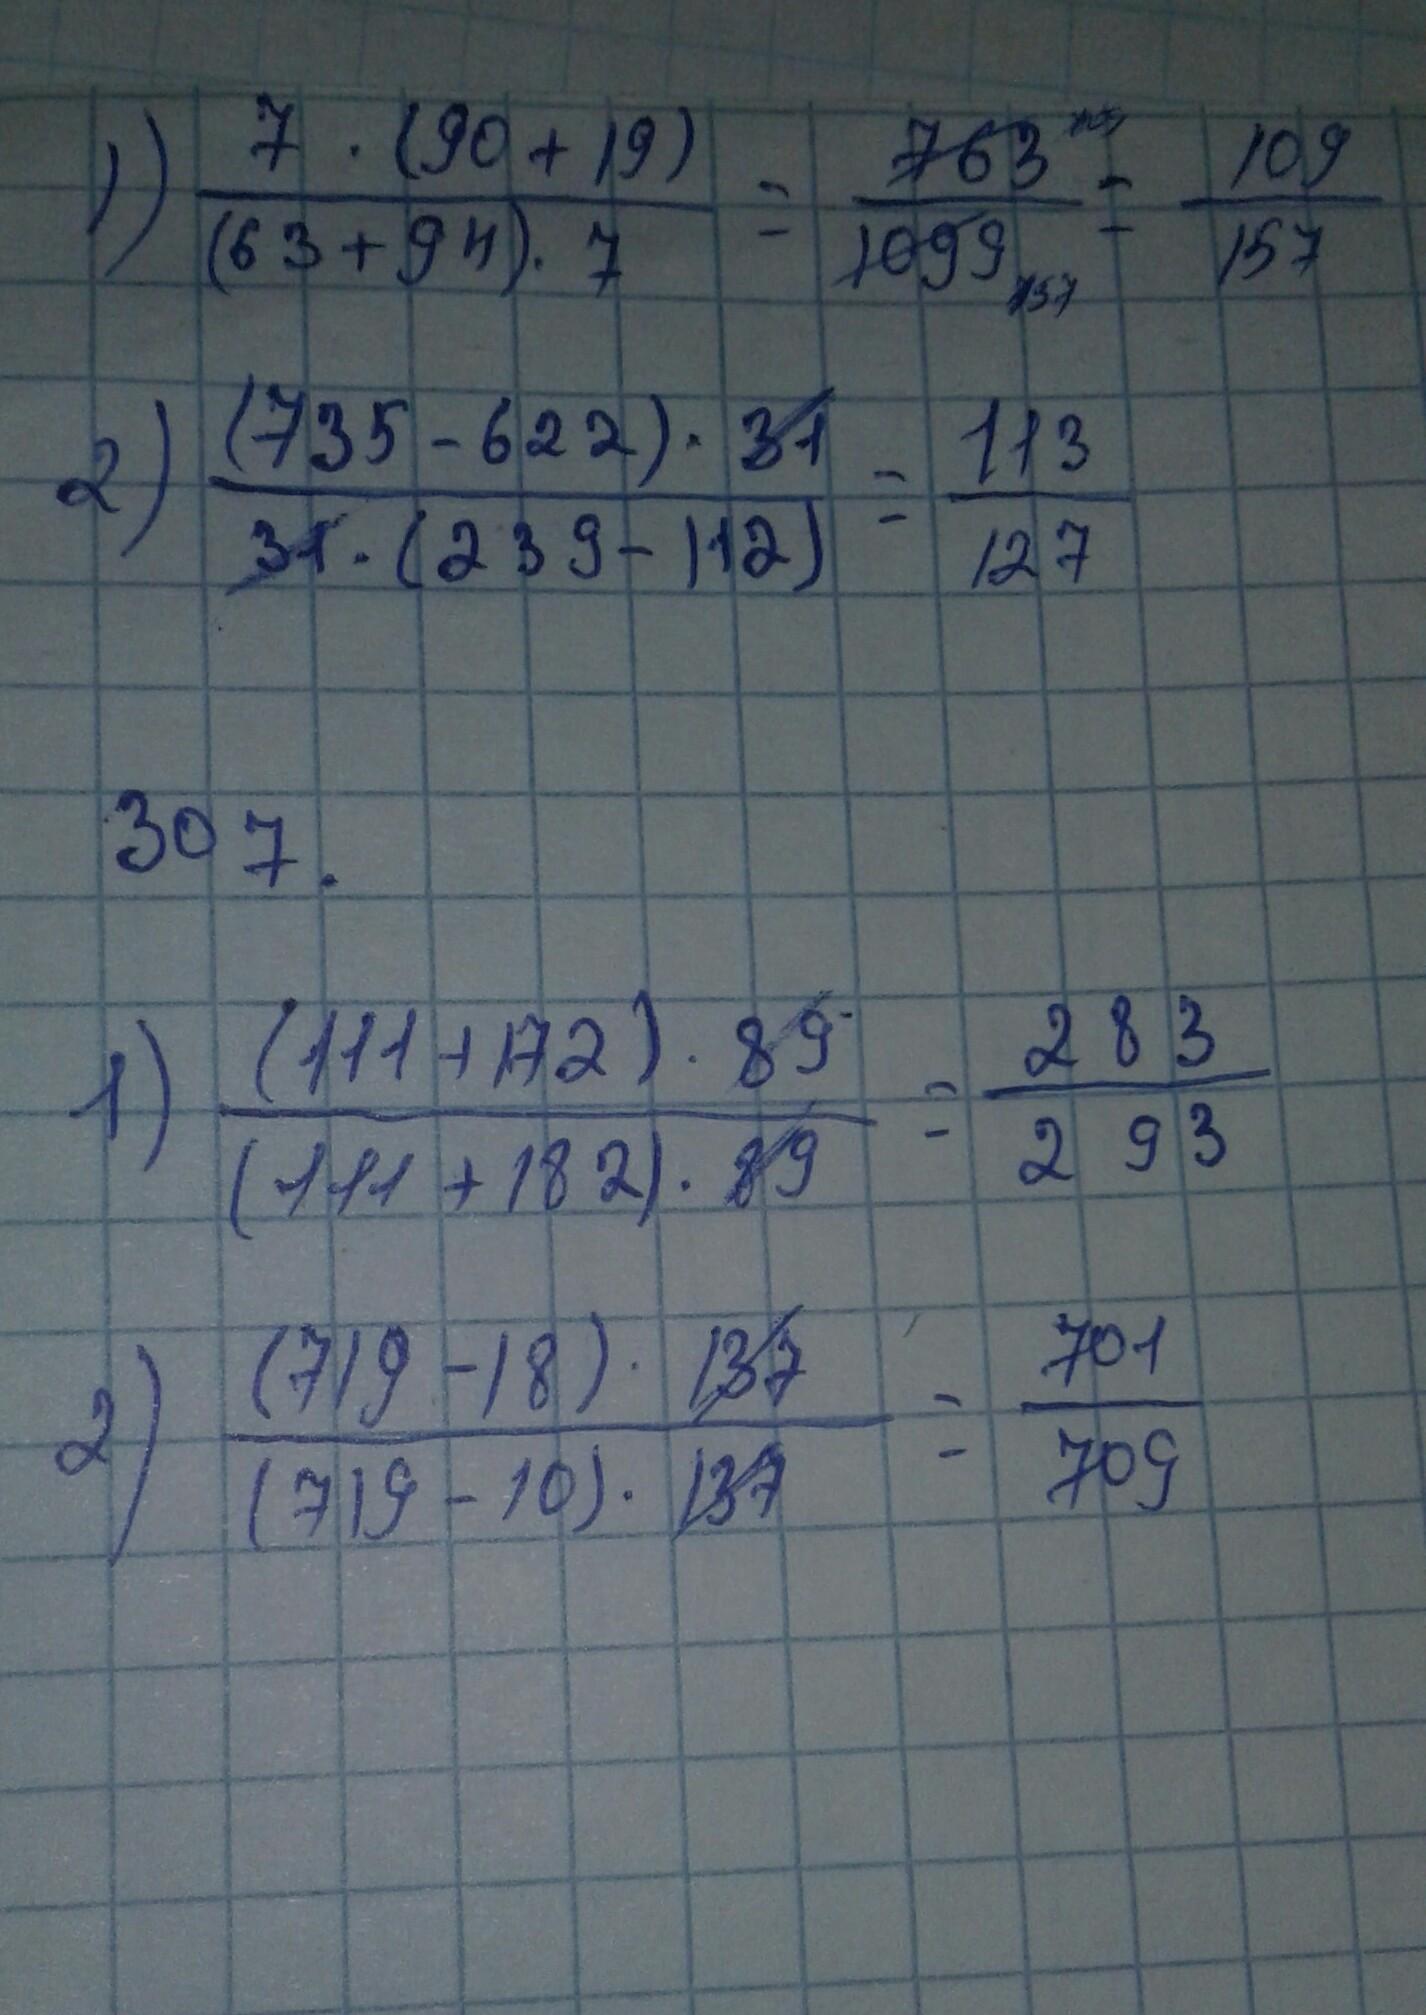 1) 7 · (90 + 19) / (63 + 94) · 7 = 763 109 / 1099 157 = 109 / 157
2) (735 - 622) · 31 / 31 · (239 - 112) = 113 / 127
307.
1) (111 + 172) · 89 / (111 + 182) · 89 = 283 / 293
2) (719 - 18) · 137 / (719 - 10) · 137 = 701 / 709